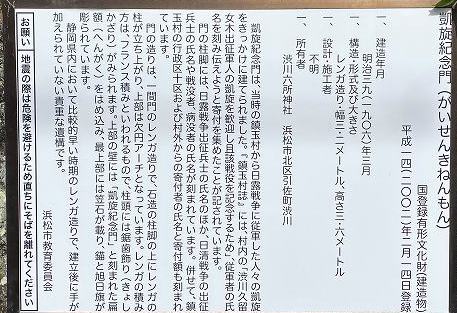 凱旋紀念門（がいせんきねんもん）
国登録有形文化財（建造物）
平成一四（二〇〇二）年二月一四日登録
一、建造年月
明治三九（一九〇六）年三月
一、構造・形式及び大きさ
レンガ造り・幅三・二メートル、高さ三・六メートル
一、設計・施工者
不明
一、所有者
渋川六所神社　浜松市北区引佐町渋川
凱旋紀念門は、当時の鎮玉村から日露戦争に従軍した人々の凱旋
をきっかけに建てられました。『鎮玉村誌』には、村内の「渋川久留
女木出征軍人の凱旋を歓迎し且該戦役を記念するため」、従軍者の氏
名を刻み伝えようと寄付を集めたことが記されています。
門の柱脚には、日露戦争出征兵士の氏名のほか、日清戦争の出征
兵士の氏名や戦没者、病没者の氏名が刻まれています。併せて、鎮
玉村の行政区十区および村外からの寄付者の氏名と寄付額も刻まれ
ています。
門の造りは、一間門のレンガ造りで、石造の柱脚の上にレンガの
柱が立ち上がり、上部は欠円アーチとなっています。レンガの積み
方は、フランス積みといわれるもので、柱頭には鋸歯飾り（きょし
かざり）がみられます。上部の壁には「凱旋紀念門」と刻まれた扁
額（へんがく）をはめ込み、最上部には笠石が載り、錨と旭日旗が
彫られています。
静岡県内において比較的早い時期のレンガ造りで、建立後に手が
加えられていない貴重な遺構です。
浜松市教育委員会
お願い　地震の際は危険を避けるため直ちにそばを離れてください